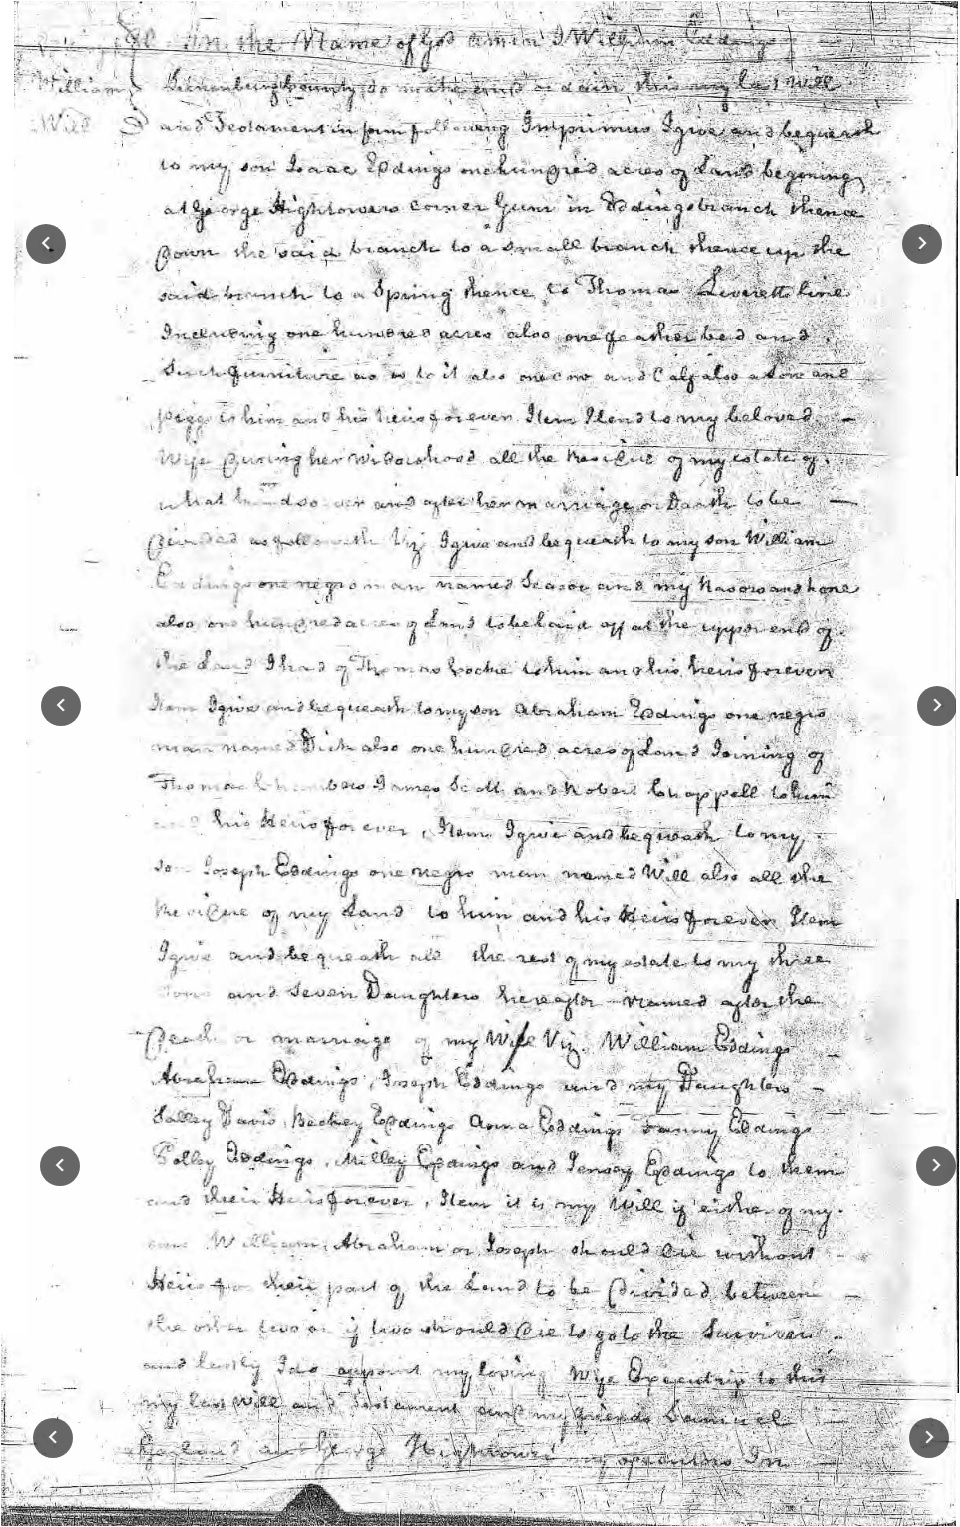 In the Name of God amen I William Eddings
William
Will
Lunenburg County do make and ordain this my last Will
and Testament in form following Imprimus I give and bequeath
to my son Isaac Eddings one hundred acres of Land begining
at George Hightowers corner Gum in Eddings branch thence
Down the said branch to a small branch thence up the
said branch to a Spring thence to Thomas Leveretts line
Including one hundred acres also one feather bed and
Such furniture as is to it also one cow and Calf also a Sow and
piggs to him and his heirs forever Item I lend to my beloved
Wife During her Widowhood all the Residue of my estate of
what kind so ever and after her marriage or Death to be
Divided as followeth Viz I give and bequeath to my son William
Eddings one negro man named Seasor and my Rasors and hone
also one hundred acres of Land to be laid off at the upper end of
the Land I had of Thomas to him and his heirs forever
Item I give and bequeath to my son Abraham Eddings one negro
man named Dick also one hundred acres of Land Joining of
Thomas Chambers James Scott and Robert Chappell to him
and his Heirs forever, Item I give and bequeath to my
son Joseph Eddings one negro man named Will also all the
Residue of my Land to him and his Heirs forever Item
I give and bequeath all the rest of my estate to my three
Sons and Seven Daughters hereafter named after the
Death or marriage of my Wife Viz. William Eddings
Abraham Eddings, Joseph Eddings and my Daughters
Salley Davis, Beckey Eddings Anna Eddings Fanny Eddings
Polley Eddings, Milley Eddings and Jensey Eddings to them
and their Heirs forever, Item it is my Will if either of my
sons William, Abraham or Joseph should Die without
Heirs for their part of the Land to be Divided between
the other two or if two should Die to go to the Surviver
and lastly I do appoint my loving Wife Executrix to this
my last Will and Testament and my friends Samuel
Garland and George Hightower my executors In